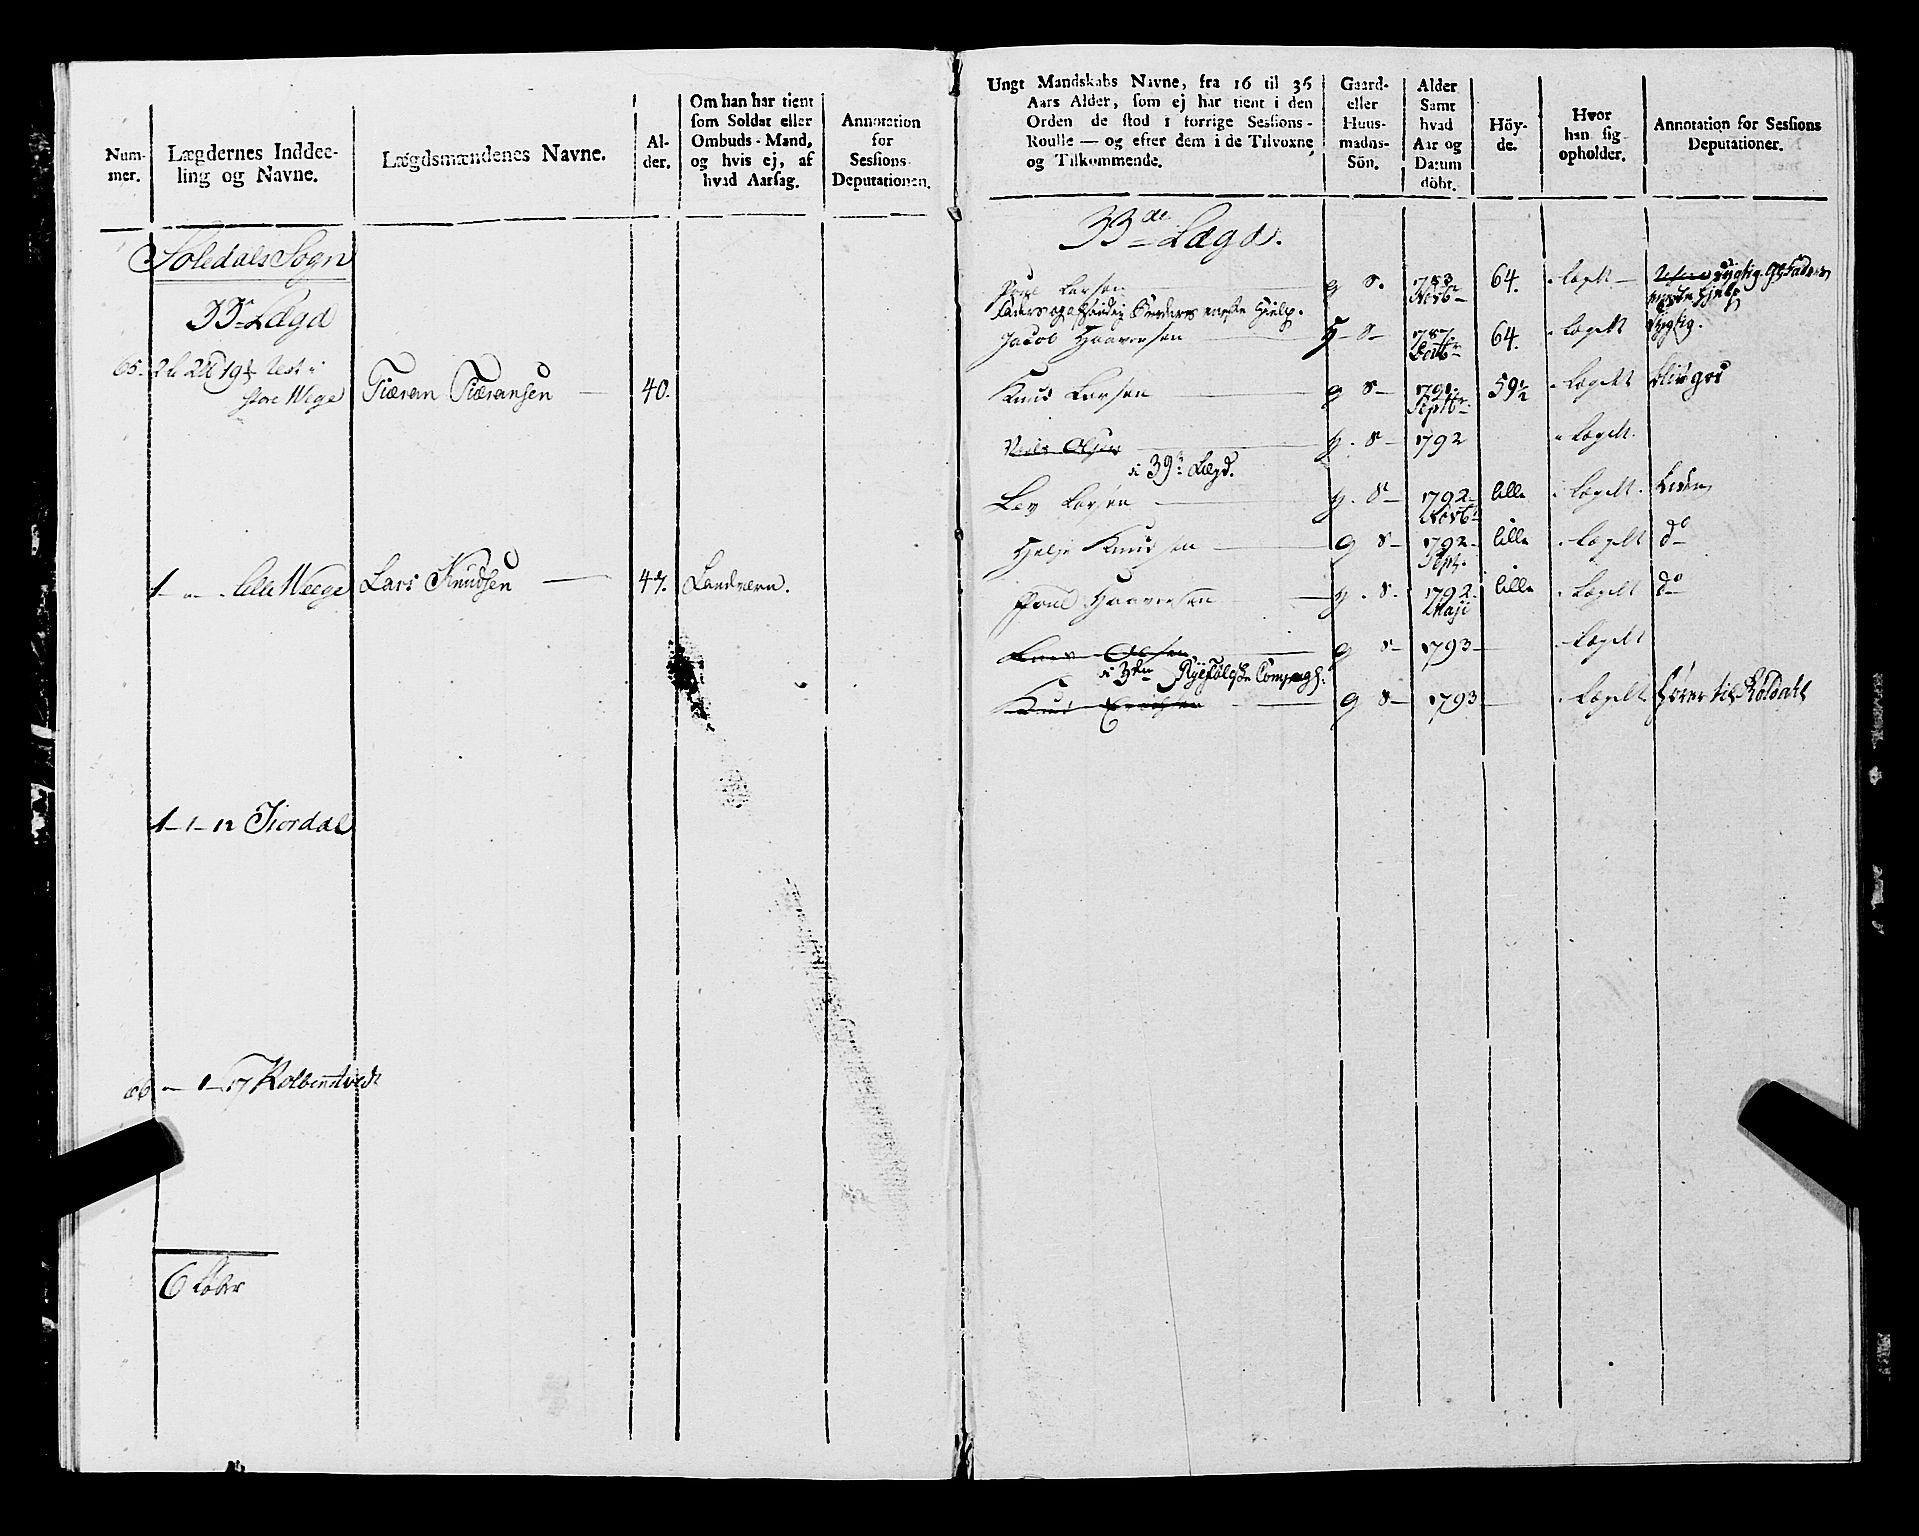 Num-
mer.
Lægdernes Inddee-
ling og Navne.
Lægdsmændenes Navne.
Al-
der.
Om han har tient
som Soldat eller
Ombuds-Mand,
og hvis ej, af
hvad Aarsag.
Annotation
for
Sessions
Deputationen.
Soledals Sogn
33 Lægd
65.
store Wege Tiæran Tiæransen 40.
1 - „ - lille Weege Lars Knudsen 47. Landværn.
1 - 1 - 12 Fiordal
66 - 1 - 17 Kolbenstvedt
6
Ungt Mandskabs Navne, fra 16 til 36
Aars Alder, som ej har tient i den
Orden de stod i forrige Sessions-
Roulle — og efter dem i de Tilvoxne
og Tilkommende.
Gaard-
eller
Huus-
mands-
Sön.
Alder
Samt
hvad
Aar og
Datum
döbt.
Höy-
de.
Hvor
han sig
opholder.
Annotation for Sessions
Deputationer.
33de Lægd.
Poul Larsen g S. 783 64. i Lægdt
Novbr
Jacob Haavorsen H S 787 64. i Lægdt dygtig.
Knud Larsen g S 1791. 59½ i Lægdt
Septbr
Niels Olsen H. S 1792 i Lægdt.
i 39te Lægd.
Lev Larsen H. S 1792 lille i Lægdt. liden
Novbr
Helje Knudsen g S 1792 lille i Lægdt do
Sept.
Poul Haavorsen H. S. 1792 lille i Lægdt do
Maji
Olsen g S 1793 Lægdt
i 3die Compagn:
Knud g S 1793 i Lægdt hører til